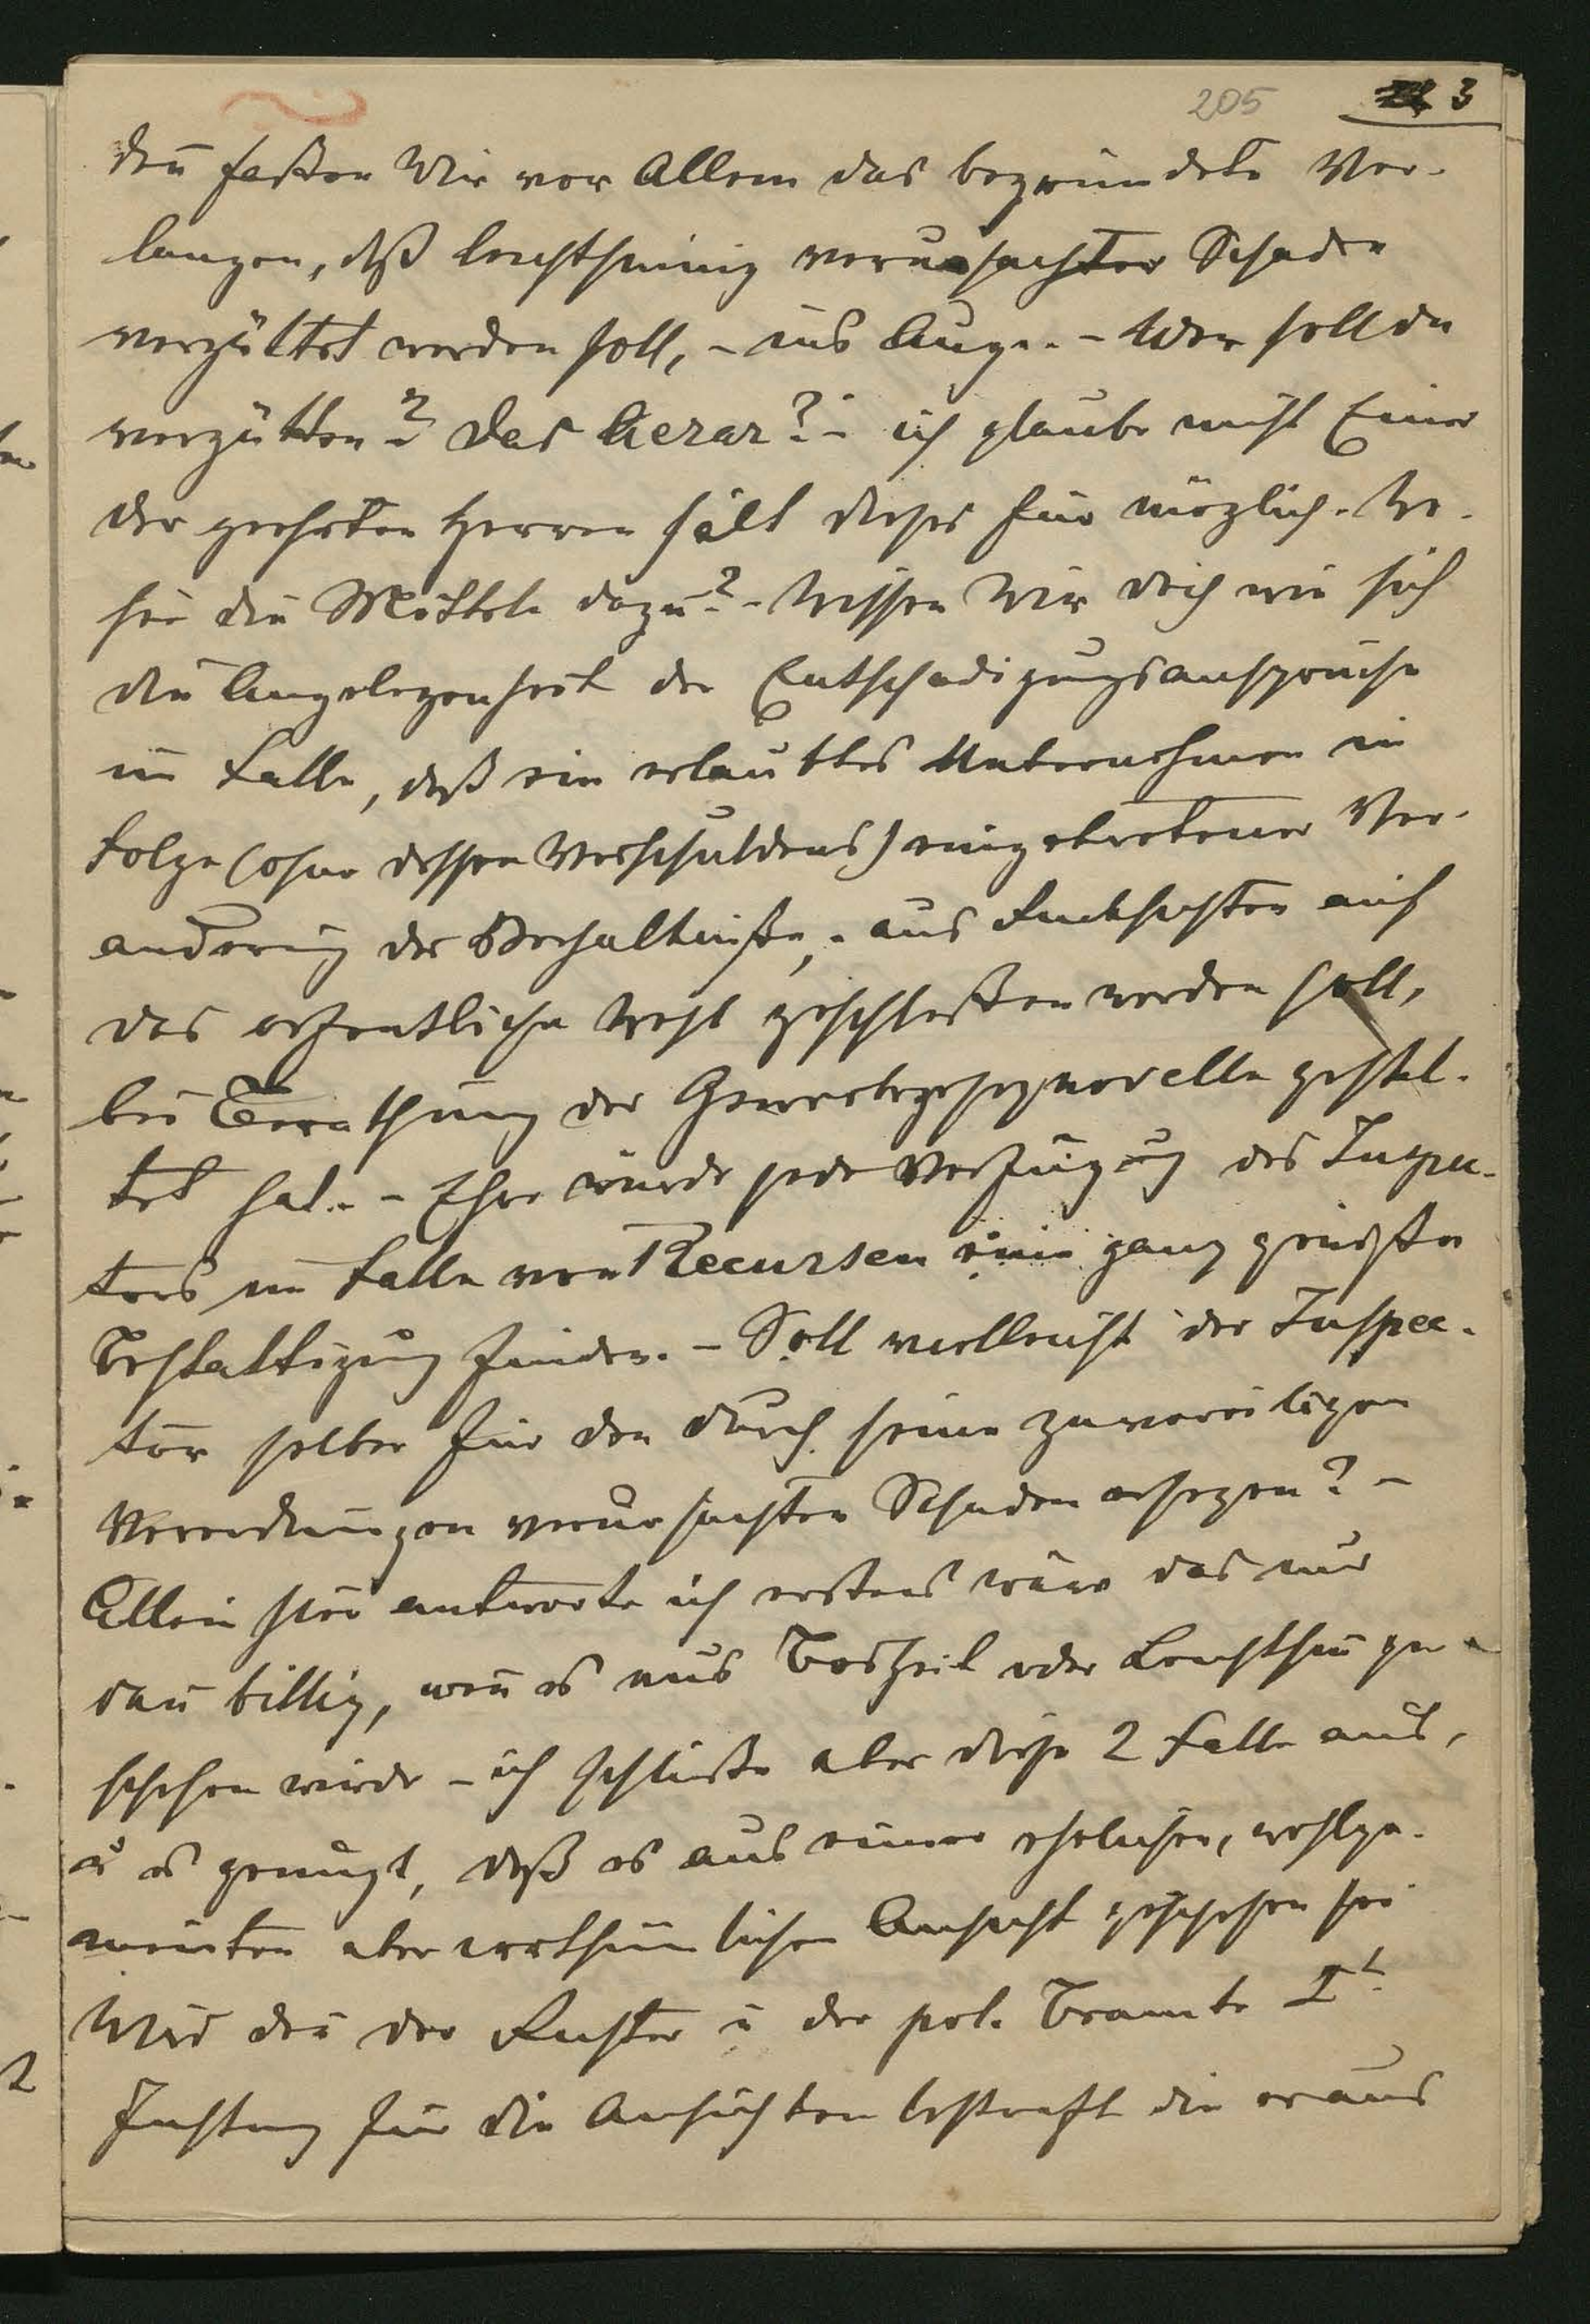 205 3
den̄ faßen Wir vor Allem das begründete Ver-
langen, dß leichtsinnig verursachter Schaden
vergüttet werden soll, - ins Auge. - Wer soll da
vergütten? Das Aerar? - ich glaube nicht Einer
der geehrten Herren hält dieses für möglich. Wo-
her die Mitteln dazu? - Wissen Wir doch wie sich
die Angelegenheit der Entschadigungsanspruche
im Falle, daß ein erlaubtes Unternehmen in
Folge (ohne dessen Verschuldens) eingetretener Ver-
anderung der Verhaltniße, - aus Rucksichten auf
das oefentliche Wohl geschloßen werden soll,
bei Berathung der Gewerbegesetznovelle gestal-
tet hat. - Eher würde jede Verfügung des Inspec-
tors im Falle von Recursen eine ganz gewiße
Bestattigung finden. - Soll vielleicht der Inspec-
tor selber für den durch seine zu voreiligen
Verordnungen verursachten Schaden ersetzen? -
Allein hier antworte ich erstens wäre das nur
dan̄ billig, wen̄ es aus Bosheit oder Leichtsin̄ ge-
schehen würde - ich schließe aber diese 2 Falle aus,
u es genügt, daß es aus einer ehrlichen, wohlge-
meinten aber irrthümlichen Ansicht geschehen sei
Wird den̄ der Richter u der pol. Beamte I<sup>t</sup>
Instanz für die Ansichten bestraft die er aus